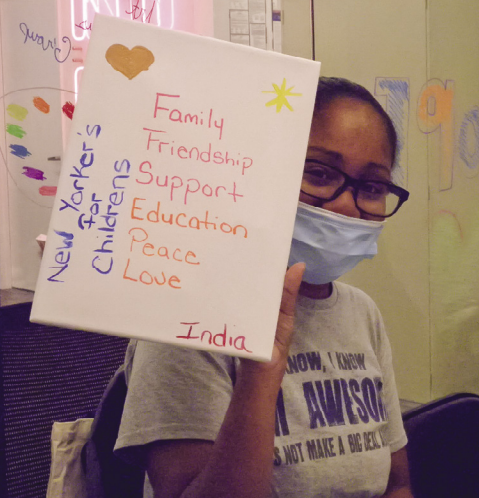 New Yorker's
for
Childrens
Family
Friendship
Support
Education
Peace
Love
India
NOW, I KNOW
AWESO
NOT MAKE A BIG DEAL
190